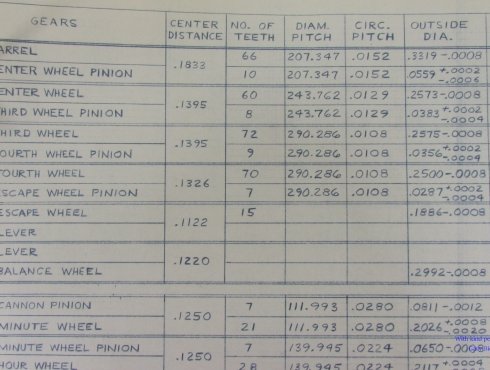 GEARS CENTER DISTANCE NO. OF TEETH DIAM. PITCH CIRC. PITCH OUTSIDE DIA.
ARREL 66 207.347 .0152 .3319-.0008
.1833
ENTER WHEEL PINION 10 207.347 .0152 .0559 +.0002
ENTER WHEEL 60 243.762 .0129 .2573-.0008
.1395
HIRD WHEEL PINION 8 243.762 .0129 .0383 +.0002 -.0004
HIRD WHEEL 72 290.286 .0108 .2575-.0008
.1395
OURTH WHEEL PINION 9 290.286 .0108 .0356 +.0002 -.0004
OURTH WHEEL 70 290.286 .0108 .2500-.0008
.1326
SCAPE WHEEL PINION 7 290.286 .0108 .0287 +.0002 -.0004
ESCAPE WHEEL 15 .1886-.0008
.1122
LEVER
LEVER
.1220
BALANCE WHEEL .2992-.0008
CANNON PINION 7 111.993 .0280 .0811-.0012
.1250
MINUTE WHEEL 21 111.993 .0280 .2026 +.0008 -.0020
MINUTE WHEEL PINION 7 139.945 .0224 .0650-.0008
.1250
HOUR WHEEL 28 139.945 .0224 .2117 +.0004